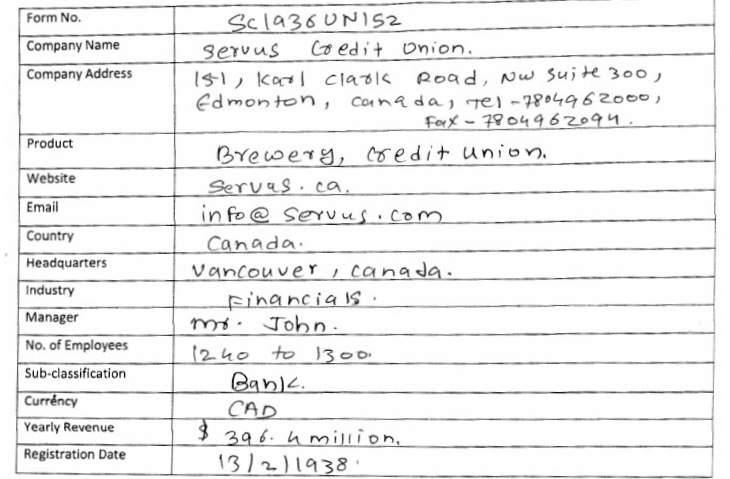 Form No. SC1936UN152
Company Name Servus Credit Union.
Company Address 151, Karl Clark Road, NW Suite 300,
Edmonton, Canada, Tel - 7804962000,
Fax - 7804962094.
Product Brewery, Credit Union.
Website Servus.ca.
Email info@servus.com
Country Canada.
Headquarters Vancouver, Canada.
Industry Financials.
Manager Mr. John.
No. of Employees 1240 to 1300.
Sub-classification Bank.
Currency CAD
Yearly Revenue $ 396.4 million.
Registration Date 13/2/1938.